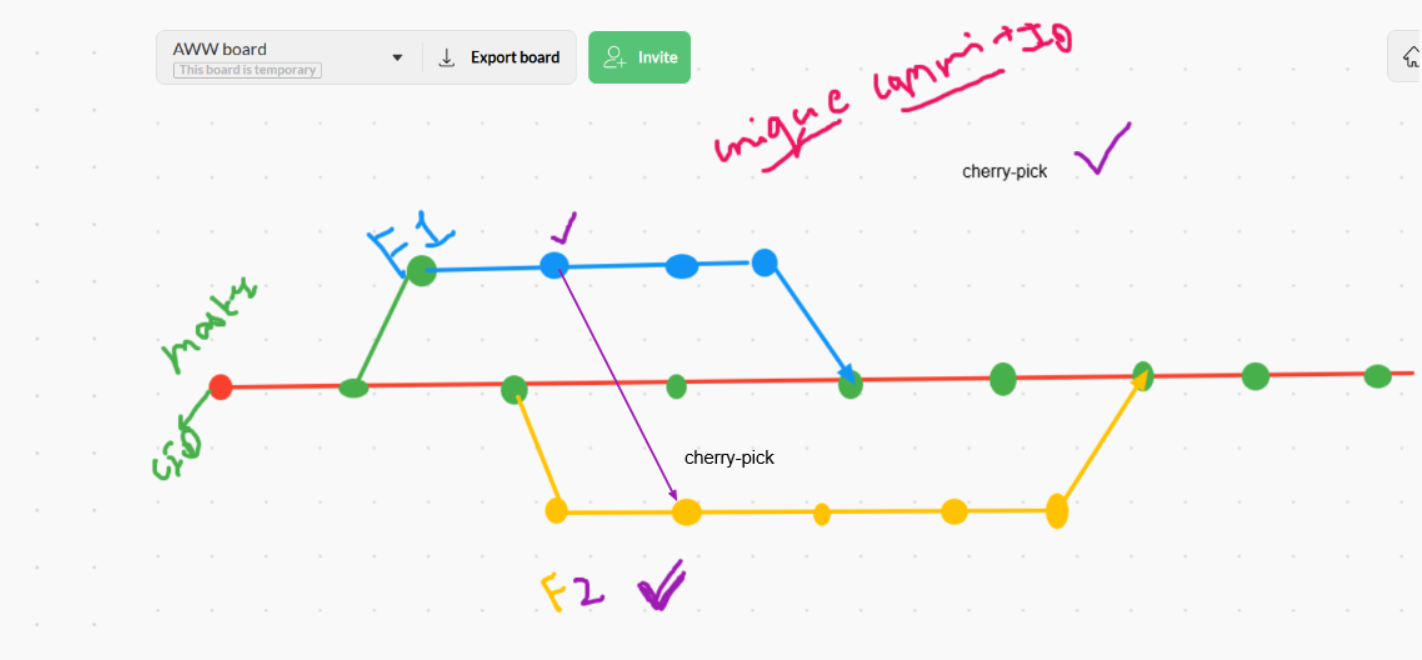 AWW board
This board is temporary
Export board
Invite
unique commit ID
cherry-pick
F1
master
CID
cherry-pick
F2